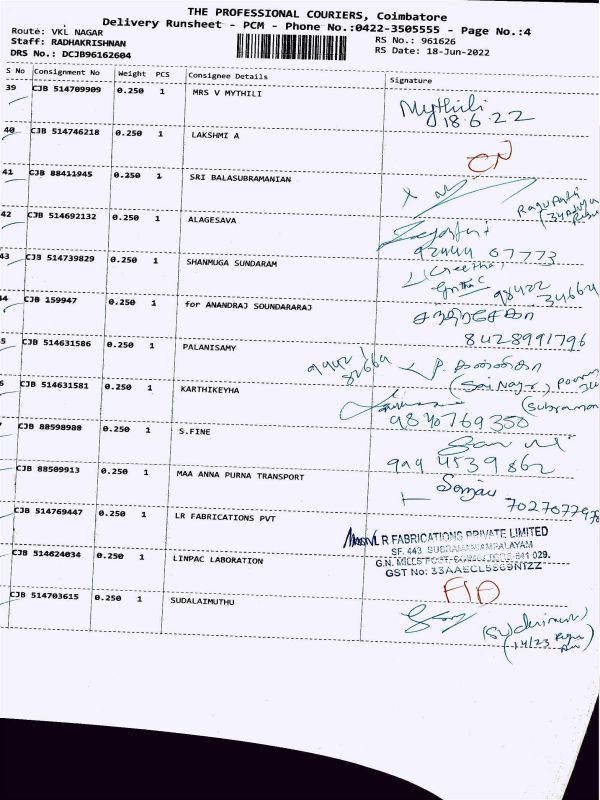 THE PROFESSIONAL COURIERS, Coimbatore
Delivery Runsheet - PCM - Phone No.:0422-3505555 - Page No.:4
Route: VKL NAGAR
RS No.: 961626
Staff: RADHAKRISHNAN
RS Date: 18-Jun-2022
DRS No.: DCJB96162604
S No Consignment No Weight PCS Consignee Details Signature
39 CJB 514709909 0.250 1 MRS V MYTHILI Mythili
18.6.22
40 CJB 514746218 0.250 1 LAKSHMI A
41 CJB 88411945 0.250 1 SRI BALASUBRAMANIAN
42 CJB 514692132 0.250 1 ALAGESAVA
92444 07773
43 CJB 514739829 0.250 1 SHANMUGA SUNDARAM (Geetha)
98422
34664
44 CJB 159947 0.250 1 for ANANDRAJ SOUNDARARAJ
8428991796
5 CJB 514631586 0.250 1 PALANISAMY
(Sai Nagar)
6 CJB 514631581 0.250 1 KARTHIKEYHA
9840769350
CJB 88598988 0.250 1 S.FINE
999 4539862
CJB 88509913 0.250 1 MAA ANNA PURNA TRANSPORT Sanjay
CJB 514769447 0.250 1 LR FABRICATIONS PVT
LR FABRICATIONS PRIVATE LIMITED
SF. 443 SUBRAMANIAMPALAYAM
G.N. MILLS POST, COIMBATORE-641 029.
GST No: 33AAECL5569N1ZZ
CJB 514624034 0.250 1 LINPAC LABORATION
CJB 514703615 0.250 1 SUDALAIMUTHU